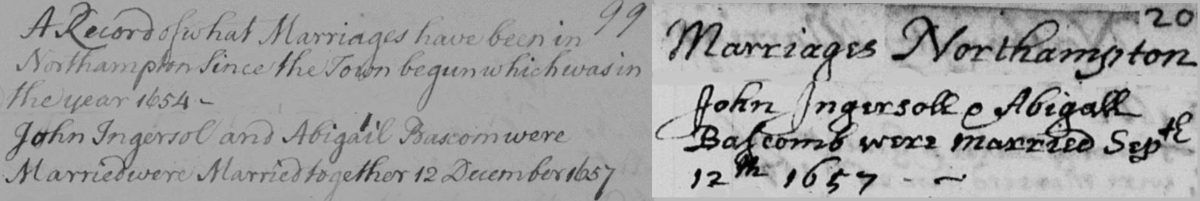 99
A Record of what Marriages have been in
Northampton Since the Town begun which was in
the year 1654 –
John Ingersol and Abigail Bascom were
Married were Married together 12 December 1657
20
Marriages Northampton
John Ingersoll & Abigall
Bascomb were married Sept^E
12th 1657 – –